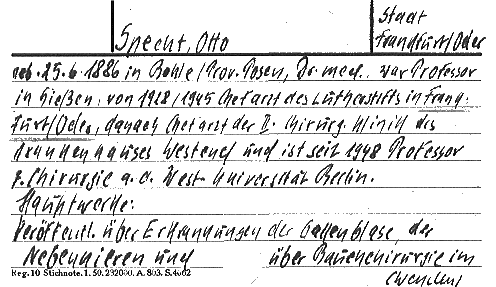 Specht, Otto
Stadt
Frankfurt/Oder
geb. 25.6.1886 in Bohle/Prov. Posen, Dr. med., war Professor
in Gießen; von 1928/1945 Chefarzt des Lutherstifts in Frank-
furt/Oder, danach Chefarzt der II. Chirurg. Klinik des
Krankenhauses Westend und ist seit 1948 Professor
f. Chirurgie a. d. West-Universität Berlin.
Hauptwerke:
Veröffentl. über Erkrankungen der Gallenblase, der
Nebennieren und über Bauchchirurgie im
Reg. 10 Stichnote. 1. 50. 232000. A. 803. S. 4062